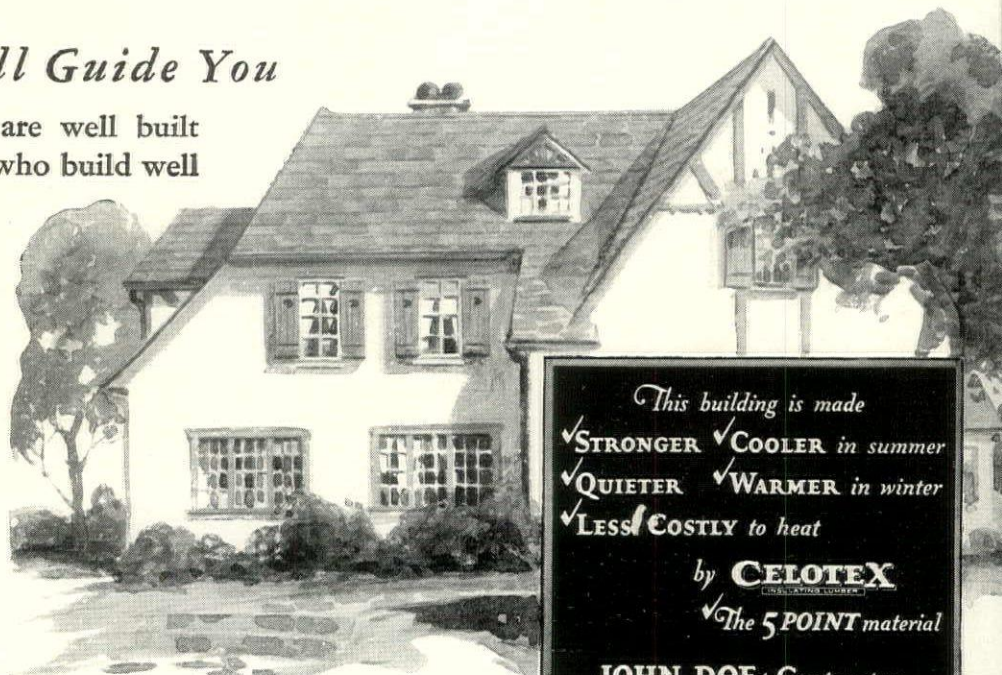 ll Guide You
are well built
who build well
This building is made
✓STRONGER ✓COOLER in summer
✓QUIETER ✓WARMER in winter
✓LESS COSTLY to heat
by CELOTEX
INSULATING LUMBER
✓The 5 POINT material
JOHN DOE